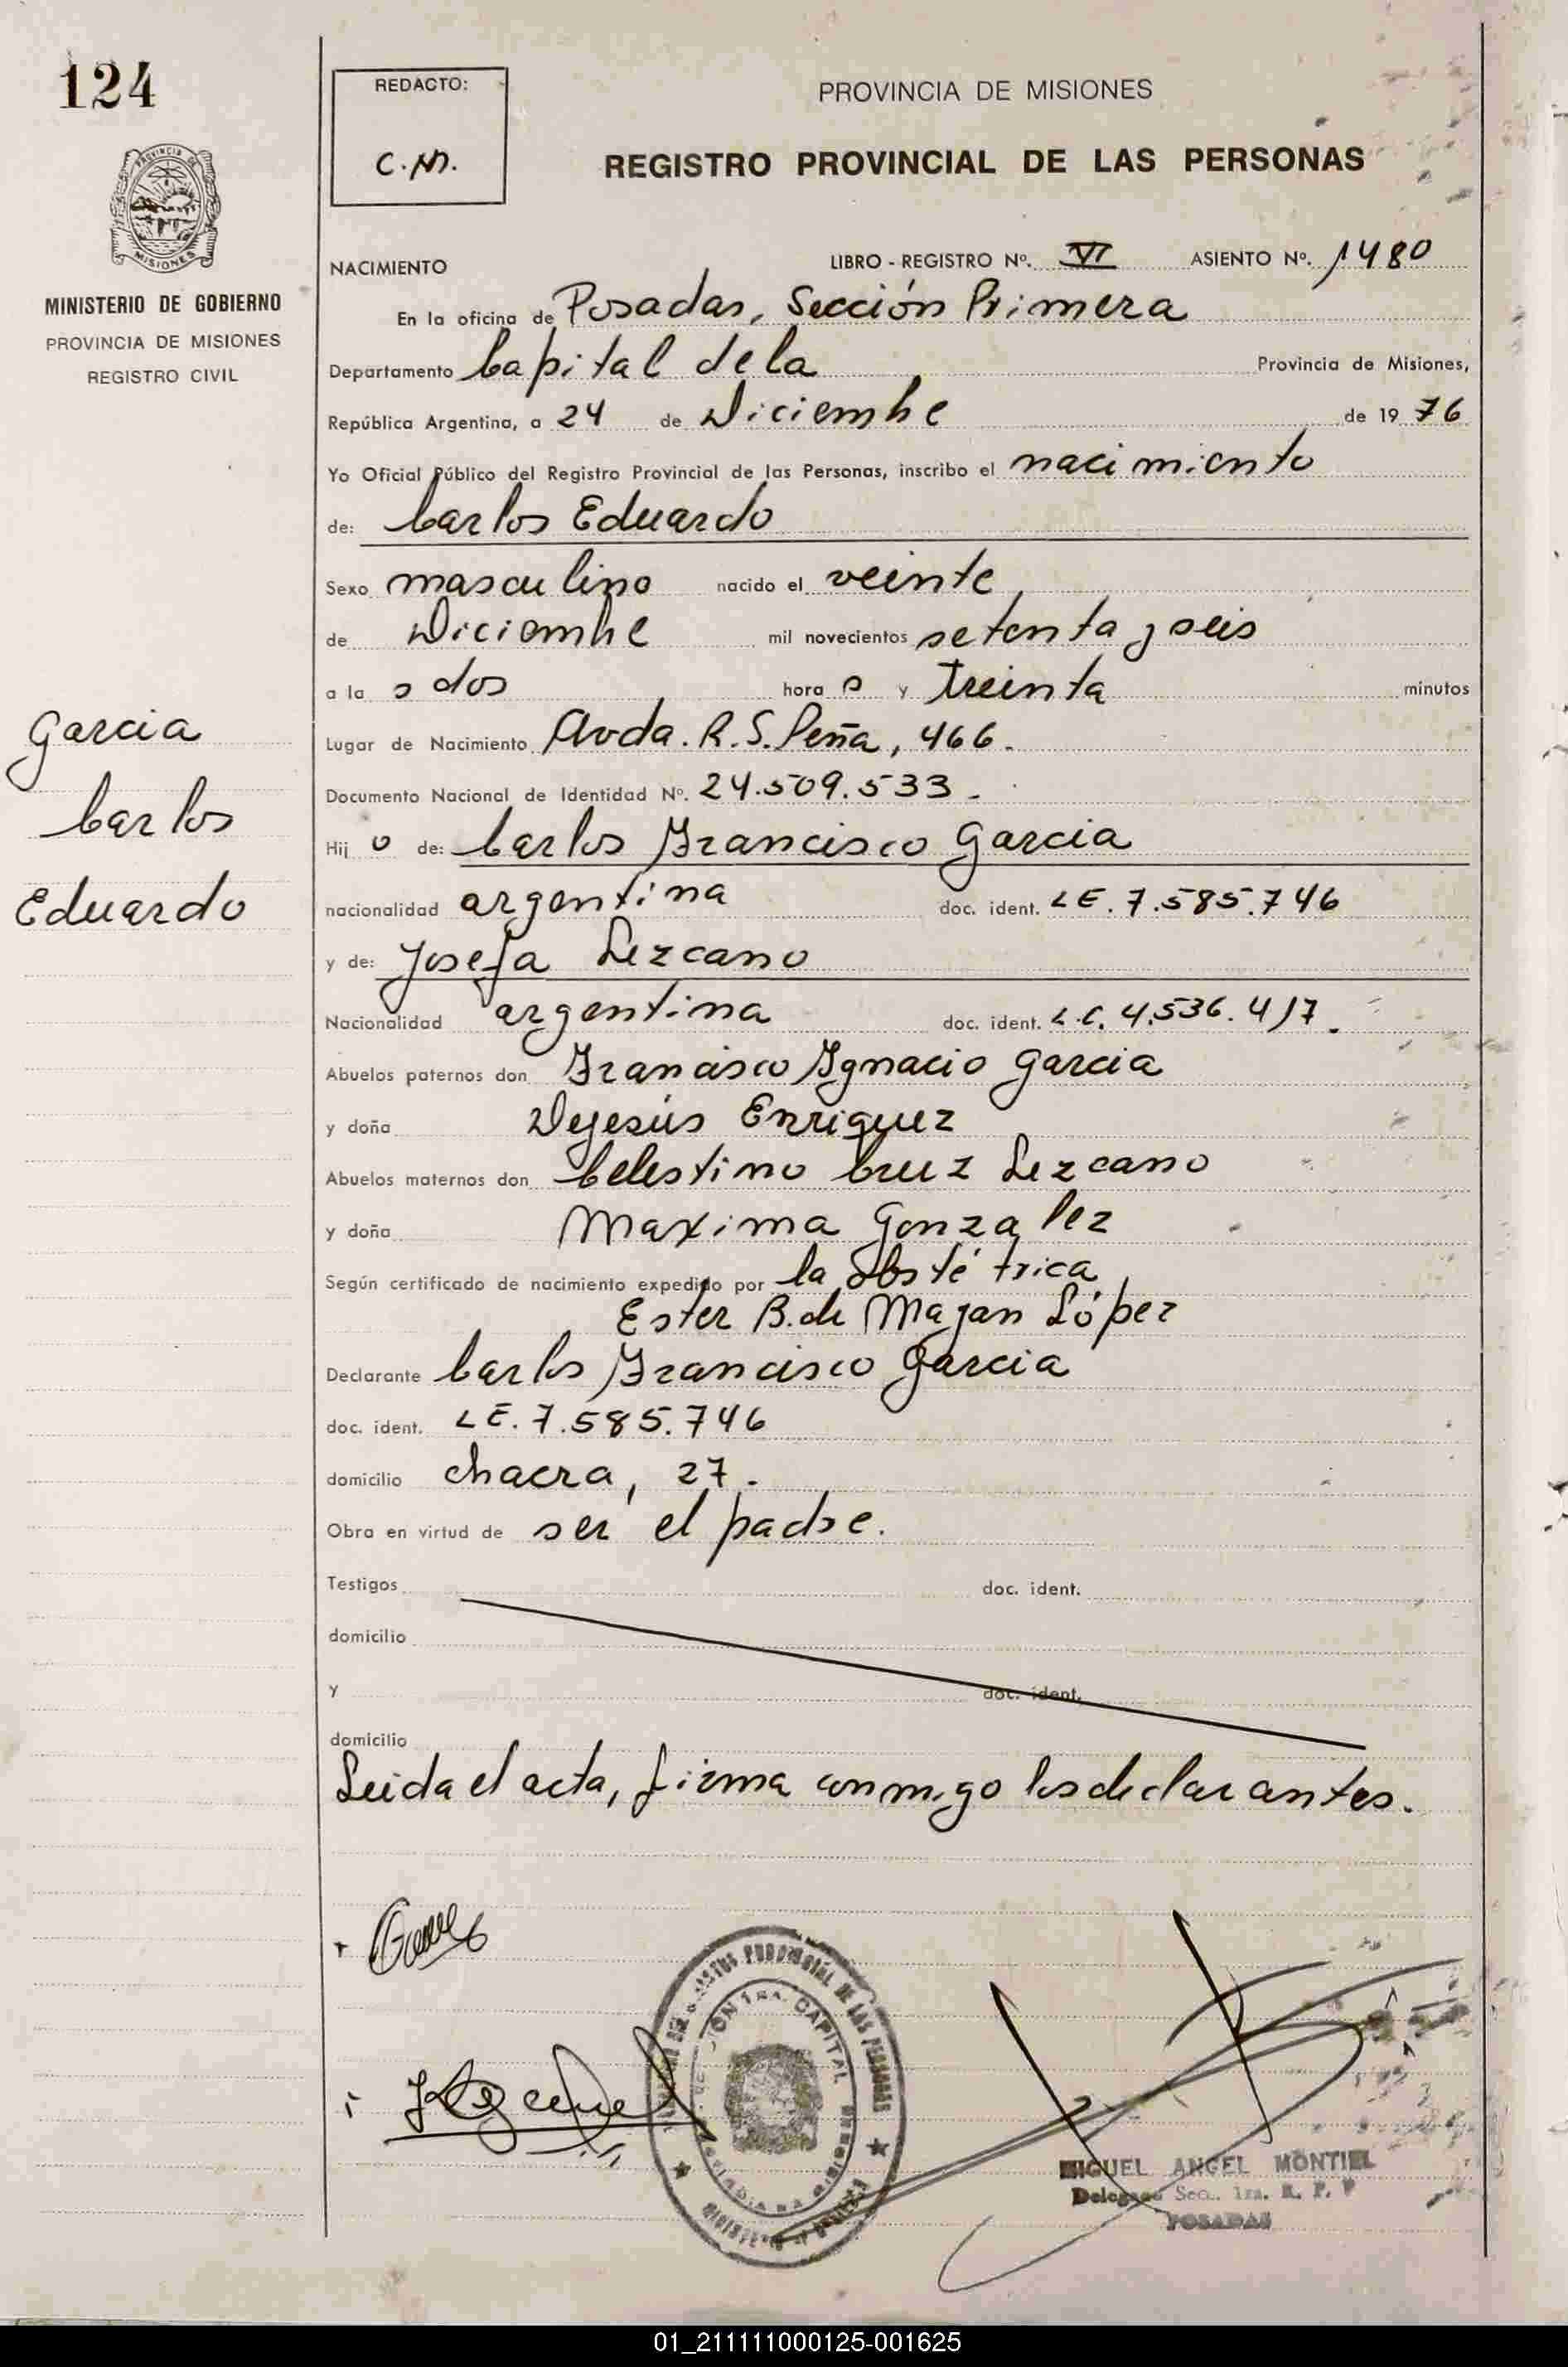 124
PROVINCIA DE
MISIONES
MINISTERIO DE GOBIERNO
PROVINCIA DE MISIONES
REGISTRO CIVIL
Garcia
Carlos
Eduardo
REDACTO:
C.M.
PROVINCIA DE MISIONES
REGISTRO PROVINCIAL DE LAS PERSONAS
NACIMIENTO LIBRO - REGISTRO Nº. VI ASIENTO Nº. 1480
En la oficina de Posadas, Sección Primera
Departamento Capital de la Provincia de Misiones,
República Argentina, a 24 de Diciembre de 19 76
Yo Oficial Público del Registro Provincial de las Personas, inscribo el nacimiento
de: Carlos Eduardo
Sexo masculino nacido el veinte
de Diciembre mil novecientos setenta y seis
a la s dos hora s y treinta minutos
Lugar de Nacimiento Avda. R.S. Peña, 466.
Documento Nacional de Identidad Nº. 24.509.533.-
Hij o de: Carlos Francisco Garcia
nacionalidad argentina doc. ident. LE. 7.585.746
y de: Josefa Lezcano
Nacionalidad argentina doc. ident. L.C. 4.536.417.
Abuelos paternos don Francisco Ignacio Garcia
y doña Dejesús Enriquez
Abuelos maternos don Celestino Cruz Lezcano
y doña Maxima Gonzalez
Según certificado de nacimiento expedido por la obstétrica
Ester B. de Majan López
Declarante Carlos Francisco Garcia
doc. ident. LE. 7.585.746
domicilio chacra, 27.
Obra en virtud de ser el padre.
Testigos doc. ident.
domicilio
y doc. ident.
domicilio
Leida el acta, firma conmigo los declarantes.
PROVINCIAL DE LAS PERSONAS
1ra. CAPITAL
MIGUEL ANGEL MONTIEL
Delegado Sec. 1ra. R. P. P
POSADAS
01_211111000125-001625